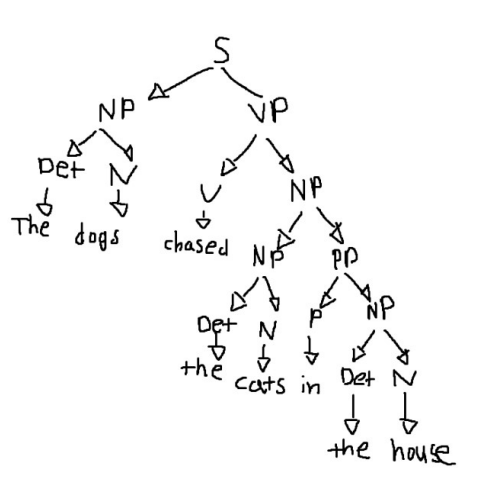 S
NP VP
Det N V NP
The dogs chased NP PP
Det N P NP
the cats in Det N
the house